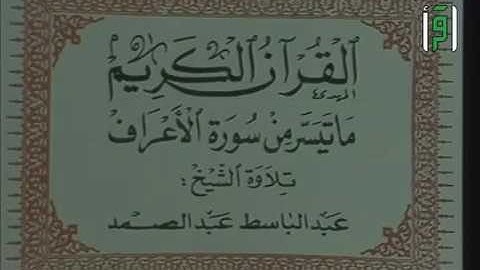 اقرأ
القرآن الكريم
ما تيسر من سورة الأعراف
تلاوة الشيخ :
عبد الباسط عبد الصمد